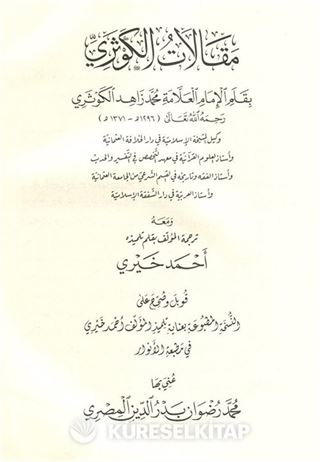 مقالات الكوثري
بقلم الإمام العلامة محمد زاهد الكوثري
رحمه الله تعالى (١٢٩٦ هـ - ١٣٧١ هـ)
وكيل المشيخة الإسلامية في دار الخلافة العثمانية
وأستاذ لعلوم القرآنية في معهد التخصص في التفسير والحديث
وأستاذ الفقه وتاريخه في القسم الشرعي من الجامعة العثمانية
وأستاذ العربية في دار الشفقة الإسلامية
ومعه
ترجمة المؤلف بقلم تلميذه
أحمد خيري
قوبل وصحح على
النسخة المطبوعة بعناية تلميذ المؤلف أحمد خيري
في مطبعة الأنوار
عني بها
محمد رضوان بدر الدين المصري
KÜRESELKİTAP